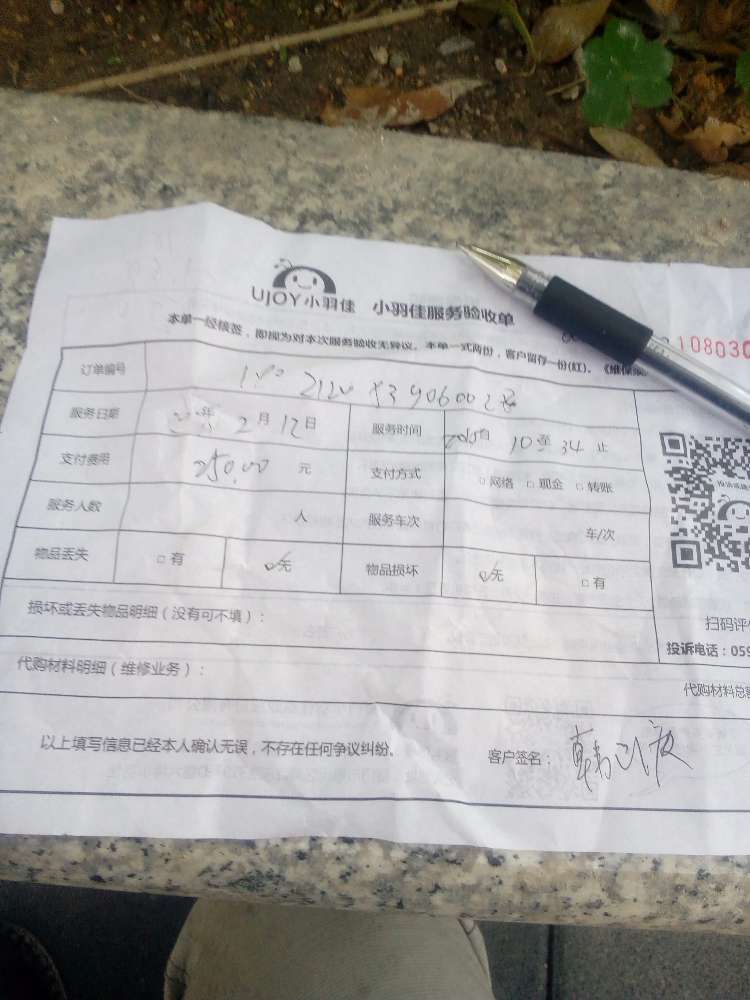 UJOY小羽佳 小羽佳服务验收单
本单一经核签，即视为对本次服务验收无异议。本单一式两份，客户留存一份(红)。《维保
108030
订单编号
服务日期 年 2月12日 服务时间 自 10至 34止
支付费用 250.00 元 支付方式 □网络 □现金 □转账
服务人数 人 服务车次 车/次
物品丢失 □有 无 物品损坏 无 □有
损坏或丢失物品明细（没有可不填）：
扫码评
投诉电话：059
代购材料明细（维修业务）：
代购材料总
以上填写信息已经本人确认无误，不存在任何争议纠纷。 客户签名：